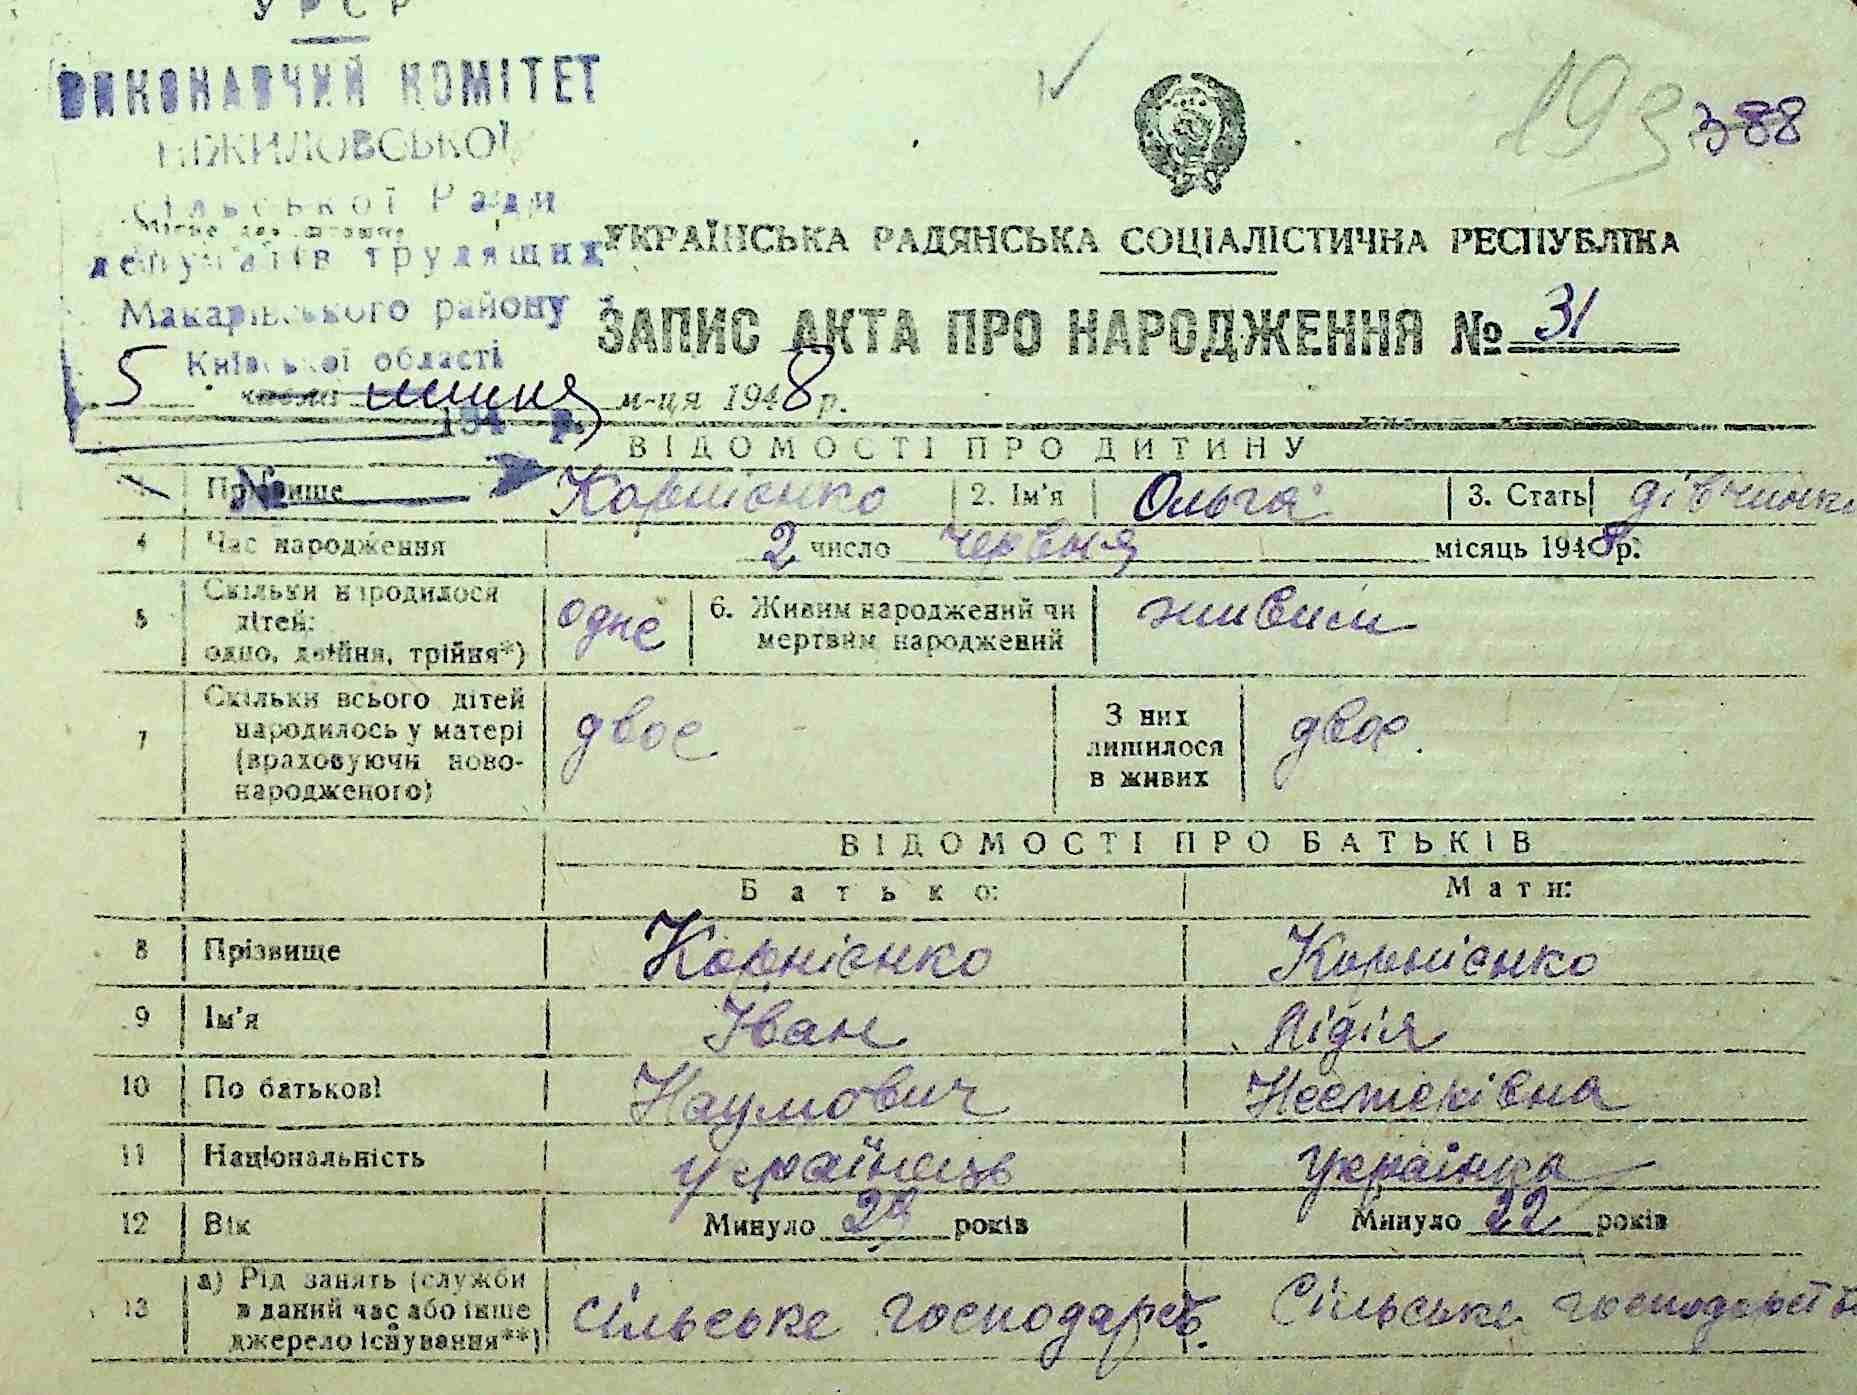 УРСР
ВИКОНАВЧИЙ КОМІТЕТ
НІЖИЛОВСЬКОЇ
сільської Ради
депутатів трудящих
Макарівського району
Київської області
193 388
УКРАЇНСЬКА РАДЯНСЬКА СОЦІАЛІСТИЧНА РЕСПУБЛІКА
ЗАПИС АКТА ПРО НАРОДЖЕННЯ № 31
5 числа липня м-ця 1948 р.
194 р.
№
ВІДОМОСТІ ПРО ДИТИНУ
1 Прізвище Корнієнко 2. Ім'я Ольга 3. Стать дівчинка
4 Час народження 2 число червня місяць 1948 р.
5 Скільки народилося дітей: одно, двійня, трійня*) одне 6. Живим народжений чи мертвим народжений живим
7 Скільки всього дітей народилось у матері (враховуючи новонародженого) двоє З них лишилося в живих двоє.
ВІДОМОСТІ ПРО БАТЬКІВ
Батько: Мати:
8 Прізвище Корнієнко Корнієнко
9 Ім'я Іван Лідія
10 По батькові Наумович Нестерівна
11 Національність українець українка
12 Вік Минуло 24 років Минуло 22 років
13 а) Рід занять (служби в даний час або інше джерело існування**) сільське господарств. Сільське господарство